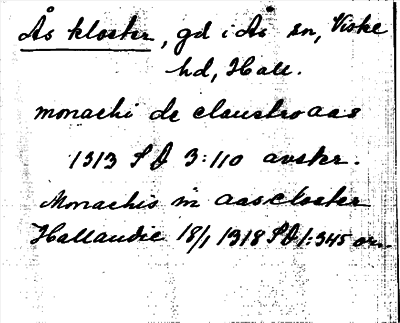 Ås kloster, gd i Ås sn, Viske
hd, Hall.
monachi de claustro aas
1313 SD 3:110 avskr.
Monachis in aascloster
Hallandie 18/1 1318 SD 1:345 or.